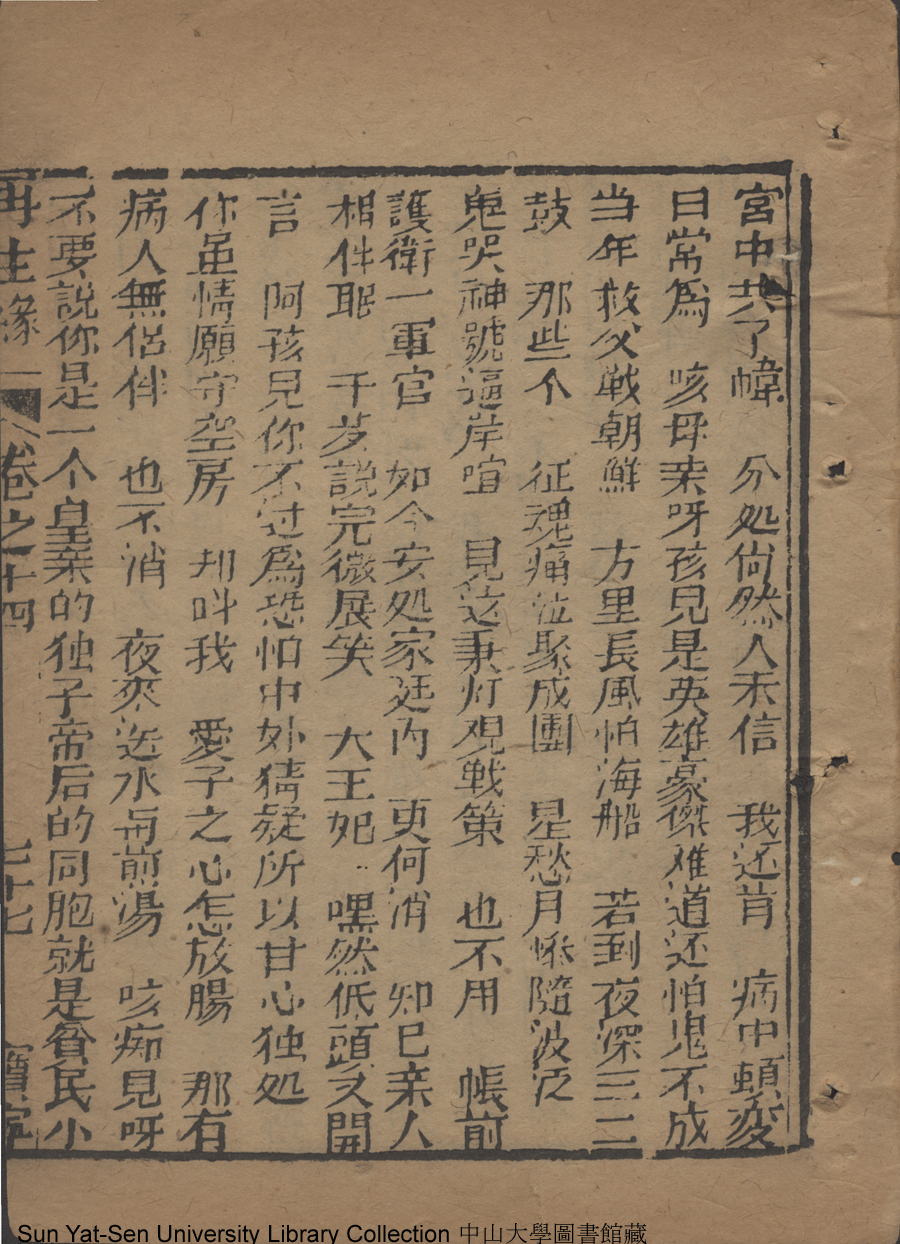 宮中共了幃　分処尙然人未信　我还肯　病中頓変
日常爲　咳母亲呀孩兒是英雄豪傑难道还怕鬼不成
当年救父戦朝鮮　方里長風怕海船　若到夜深三二
鼓　那些个　征魂痛泣聚成團　星愁月惨隨波泛
鬼哭神號逼岸喧　見这秉灯观戦策　也不用　帳前
護衛一軍官　如今安処家廷内　更何消　知己亲人
相伴眠　千岁説完微展笑　大王妃　嘿然低頭又開
言　阿孩兒你不过爲恐怕中外猜疑所以甘心独処
你虽情願守空房　却叫我　愛子之心怎放腸　那有
病人無侣伴　也不消　夜來送水與煎湯　咳痴兒呀
不要説你是一个皇亲的独子帝后的同胞就是貧民小
再生緣　卷之十四　七十七　寶寧
Sun Yat-Sen University Library Collection 中山大學圖書館藏